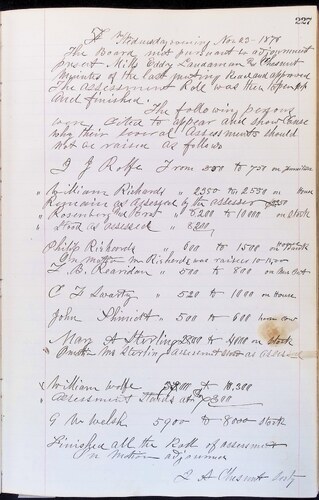 227
Wednesday evening Nov 23 - 1878
The Board met pursuant to adjournment
present Mills Eddy Landaman & Chesnut
Minutes of the last meeting Read and approved
The assessment Roll was then opened
and finished.
The following persons
were Cited to appear and show Cause
why their several Assessments should
not be raised as follows
J J Rolfe From 550 to 750 on furniture
" William Richards " 2350 to 2550 on House
Remain as assessed by the assessor 2350
" Rosenberg " 6200 to 10000 " on Stock
" Stood as assessed " 6200
Philip Richards " 600 to 1500 " Stock
On motion Mr Richards was raised to
T. B. Reardon " 500 to 800
C F " 520 to 1000 on House
John Shmidt " 500 to 600
Mary A Sterling 2800 to 4000 on Stock
Mrs Sterling assessment as Assessed
William Wolfe to 10,300
" Assessment Stands at
G W Welsh 5900 to 8000 Stock
Finished all the Roll of assessment
On motion adjourned
J A Chesnut